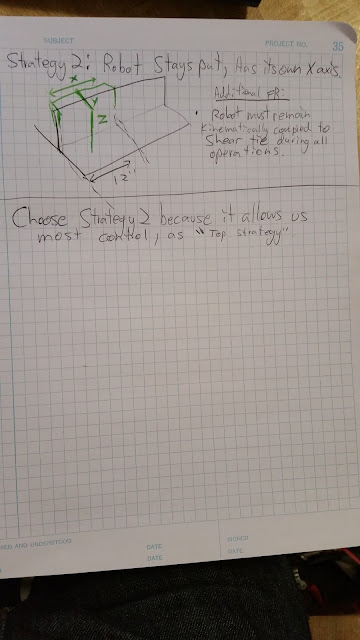 SUBJECT
PROJECT NO.
35
Strategy 2: Robot Stays put, has its own X axis.
X
Y
Z
12"
Additional FR:
• Robot must remain
kinematically coupled to
Shear tie during all
operations.
Choose Strategy 2 because it allows us
most control, as "Top Strategy"
AND UNDERSTOOD
DATE
SIGNED
DATE
DATE